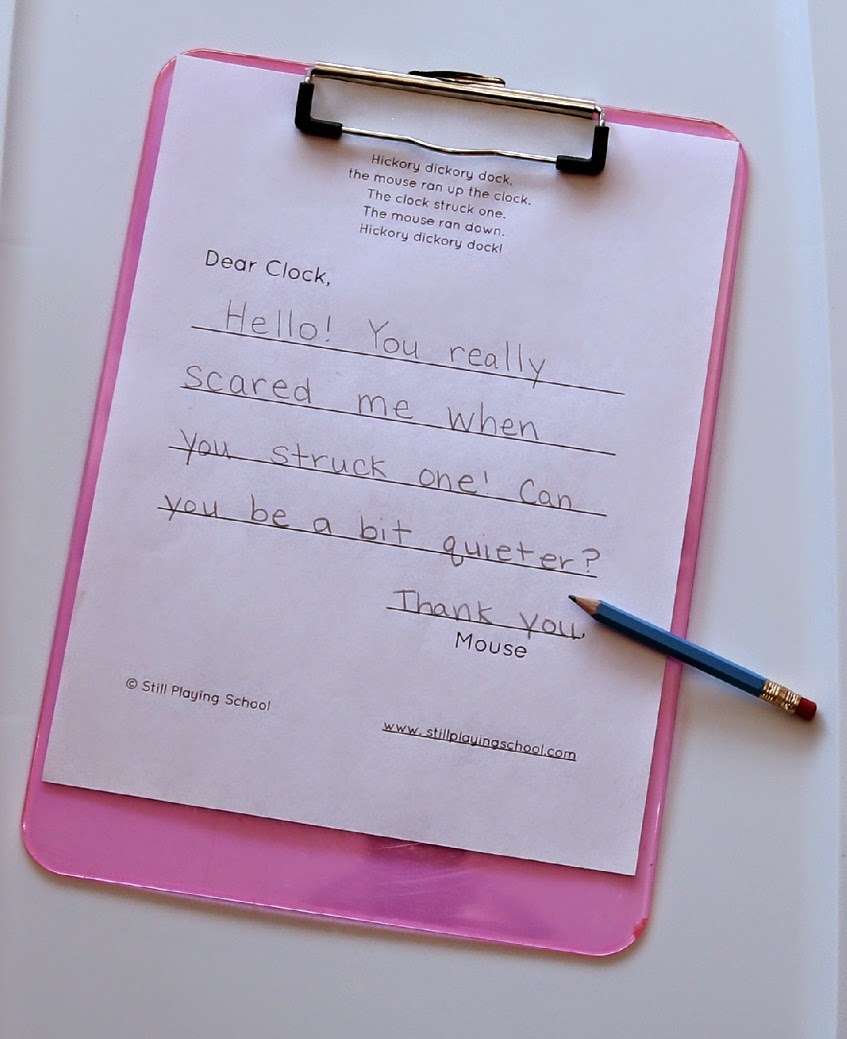 Hickory dickory dock,
the mouse ran up the clock.
The clock struck one.
The mouse ran down.
Hickory dickory dock!
Dear Clock,
Hello! You really
scared me when
you struck one! Can
you be a bit quieter?
Thank you
Mouse
© Still Playing School
www.stillplayingschool.com